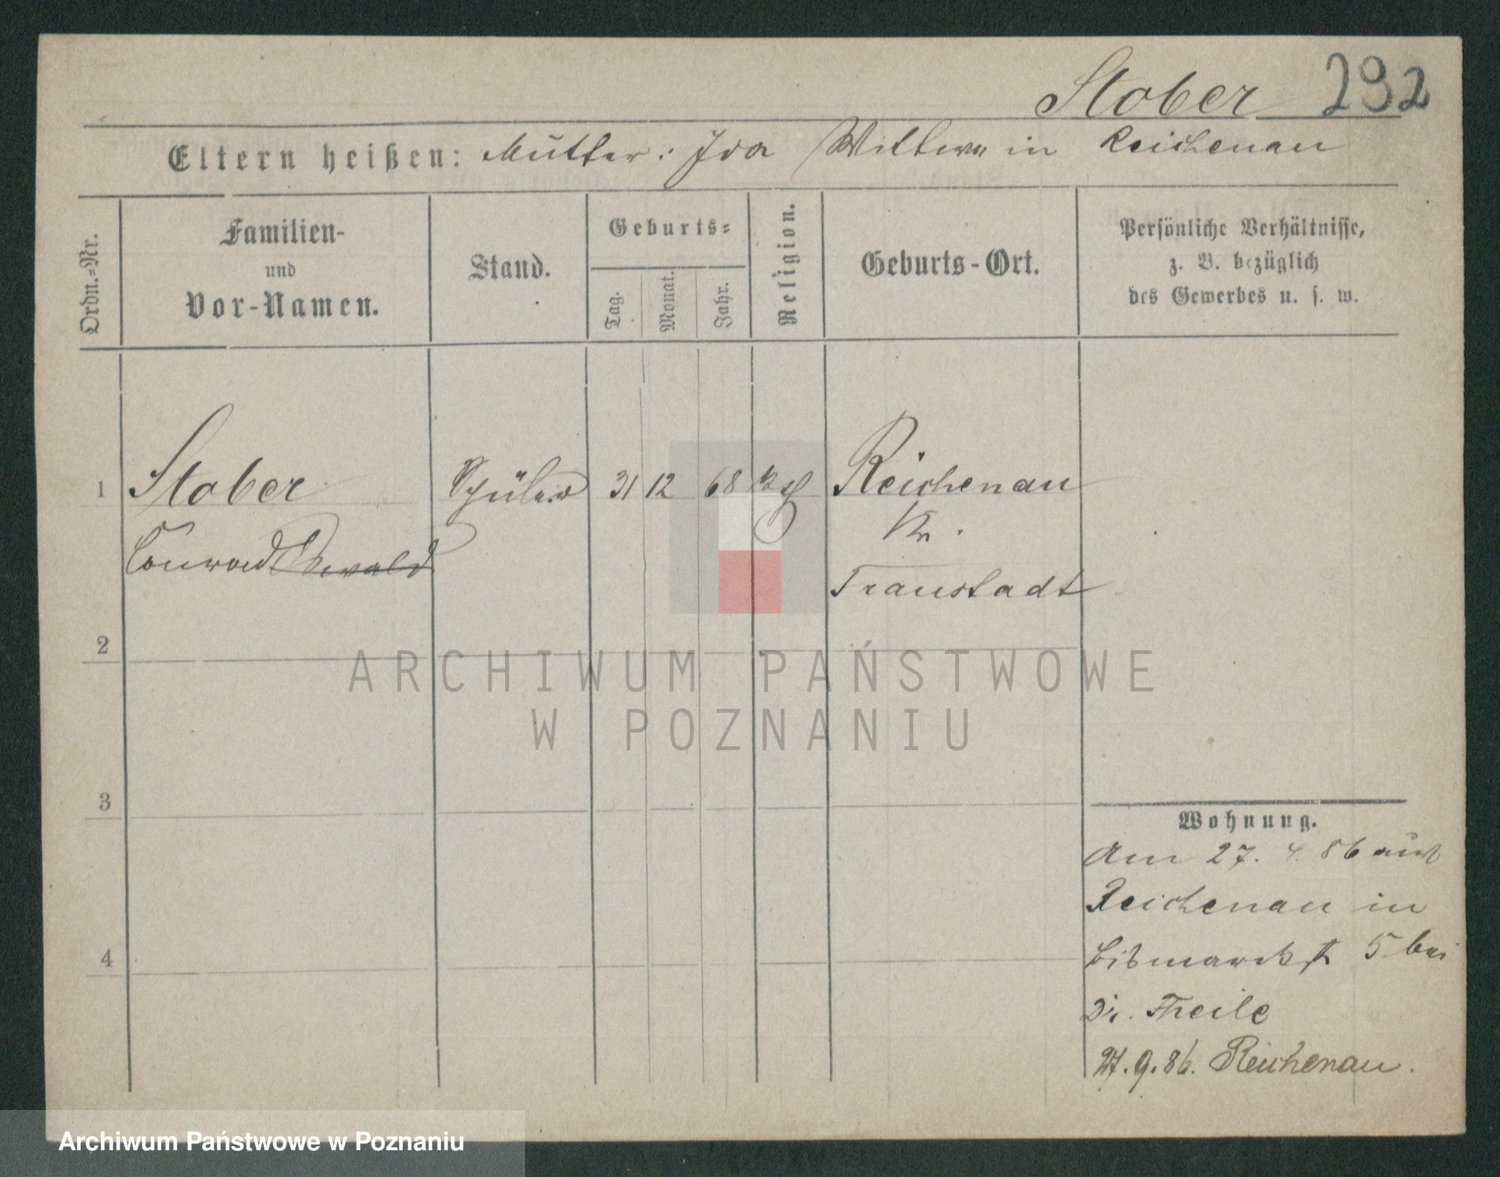 Stober 292
Eltern heißen: Mutter: Ida Wittwe in Reichenau
Ordn.-Nr.
Familien-
und
Vor-Namen.
Stand.
Geburts-
Tag.
Monat.
Jahr.
Religion.
Geburts-Ort.
Persönliche Verhältnisse,
z. B. bezüglich
des Gewerbes u. s. w.
1 Stober Schüler 31 12 68 Reichenau
Conrad Oswald Kr.
Fraustadt
2
3
4
Wohnung.
Am 27. 4. 86 aus
Reichenau in
Bismarckst 5 bei
Dr. Theile
27. 9. 86. Reichenau.
ARCHIWUM PAŃSTWOWE
W POZNANIU
Archiwum Państwowe w Poznaniu